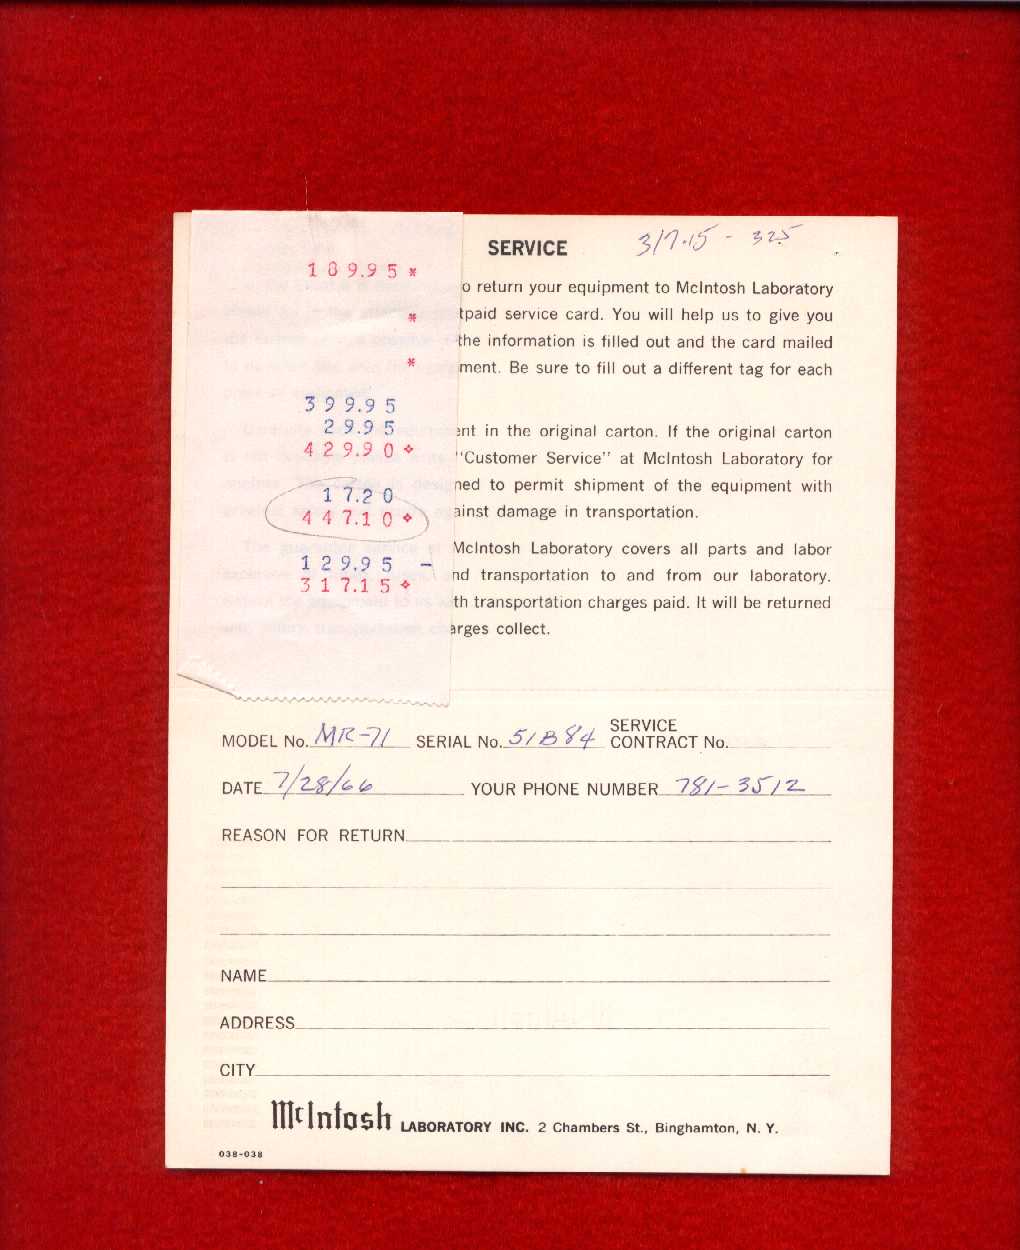 SERVICE 317.15 - 325
109.95 *
o return your equipment to McIntosh Laboratory
*
tpaid service card. You will help us to give you
the information is filled out and the card mailed
*
ment. Be sure to fill out a different tag for each
399.95
29.95
ent in the original carton. If the original carton
429.90 ⋄
"Customer Service" at McIntosh Laboratory for
17.20
ned to permit shipment of the equipment with
447.10 ⋄
ainst damage in transportation.
McIntosh Laboratory covers all parts and labor
129.95 -
nd transportation to and from our laboratory.
317.15 ⋄
th transportation charges paid. It will be returned
arges collect.
MODEL No. MR-71 SERIAL No. 51B84 SERVICE CONTRACT No.
DATE 7/28/66 YOUR PHONE NUMBER 781-3512
REASON FOR RETURN
NAME
ADDRESS
CITY
McIntosh LABORATORY INC. 2 Chambers St., Binghamton, N. Y.
038-038